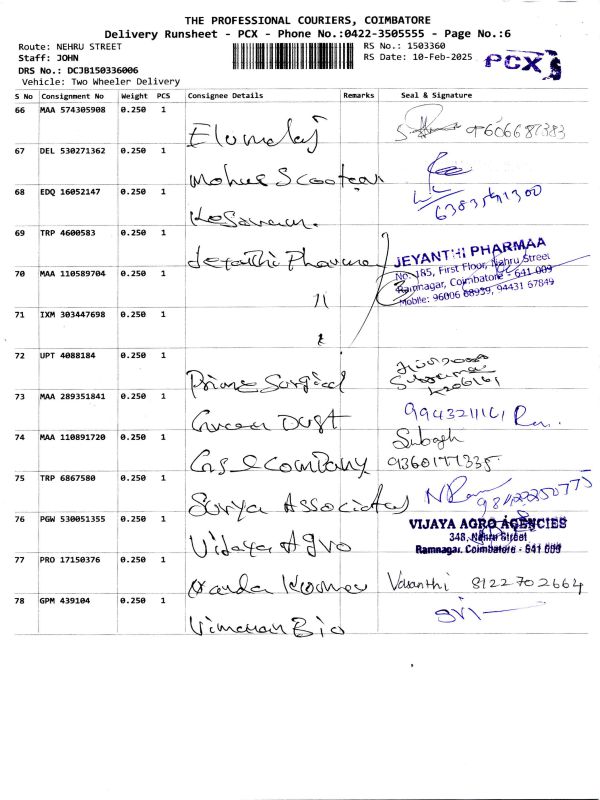 THE PROFESSIONAL COURIERS, COIMBATORE
Delivery Runsheet - PCX - Phone No.:0422-3505555 - Page No.:6
Route: NEHRU STREET
RS No.: 1503360
Staff: JOHN
RS Date: 10-Feb-2025
PCX
DRS No.: DCJB150336006
Vehicle: Two Wheeler Delivery
S No Consignment No Weight PCS Consignee Details Remarks Seal & Signature
66 MAA 574305908 0.250 1
Elumalaj 9606687383
67 DEL 530271362 0.250 1
68 EDQ 16052147 0.250 1
Kesavan.
69 TRP 4600583 0.250 1
Jeyanthi Pharma
JEYANTHI PHARMAA
No. 185, First Floor, Nehru Street
Ramnagar, Coimbatore - 641 009
Mobile: 96006 68959, 94431 67849
70 MAA 110589704 0.250 1
11
71 IXM 303447698 0.250 1
72 UPT 4088184 0.250 1
Prime Surgical
73 MAA 289351841 0.250 1
Green Dust
74 MAA 110891720 0.250 1
Subash
Company 9360177335
75 TRP 6867580 0.250 1
Surya Associates
76 PGW 530051355 0.250 1
Vijaya Agro
VIJAYA AGRO AGENCIES
348, Nehru Street
Ramnagar, Coimbatore - 641 009
77 PRO 17150376 0.250 1
Vasanthi 8122702664
78 GPM 439104 0.250 1
Bio